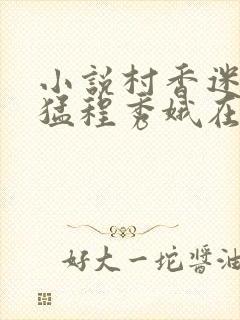 小说村香迷
猛程秀娥在
好大一坨酱油